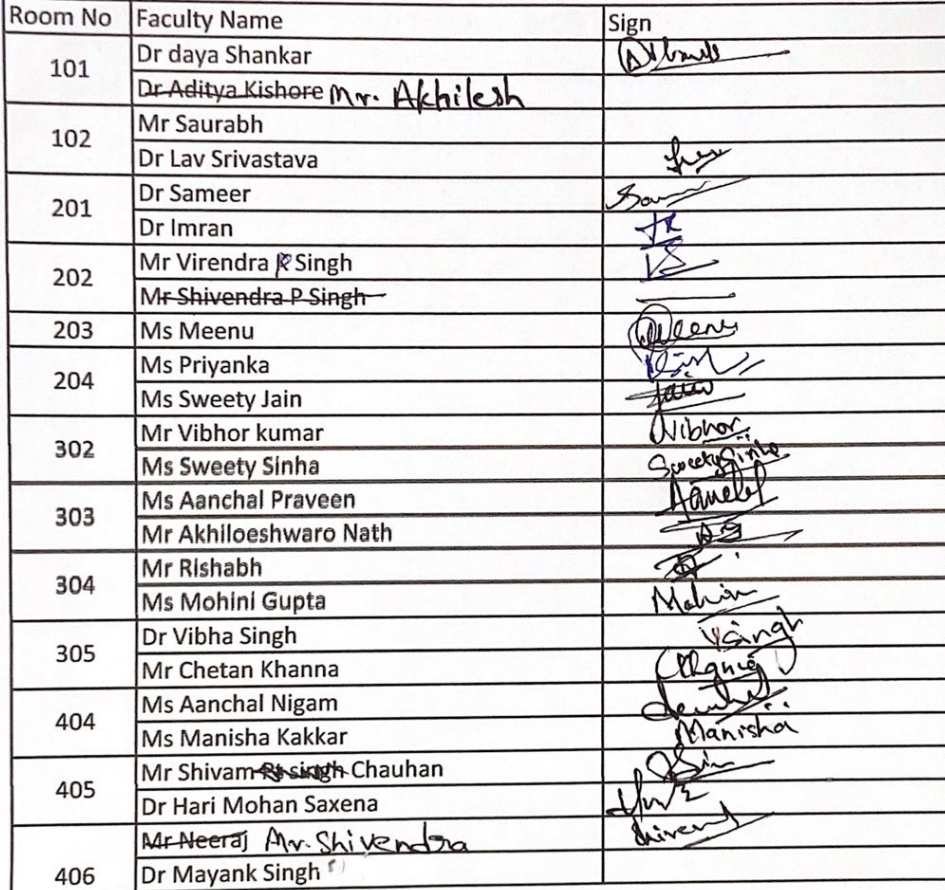 Room No Faculty Name Sign
101 Dr daya Shankar
Dr Aditya Kishore Mr. Akhilesh
102 Mr Saurabh
Dr Lav Srivastava
201 Dr Sameer
Dr Imran
202 Mr Virendra Singh VS
Mr Shivendra P Singh
203 Ms Meenu Meenu
204 Ms Priyanka
Ms Sweety Jain Jain
302 Mr Vibhor kumar Vibhor
Ms Sweety Sinha Sweety Sinha
303 Ms Aanchal Praveen
Mr Akhiloeshwaro Nath
304 Mr Rishabh
Ms Mohini Gupta Mohini
305 Dr Vibha Singh VSingh
Mr Chetan Khanna
404 Ms Aanchal Nigam
Ms Manisha Kakkar Manisha
405 Mr Shivam singh Chauhan
Dr Hari Mohan Saxena
Mr Neeraj Mr. Shivendra
406 Dr Mayank Singh